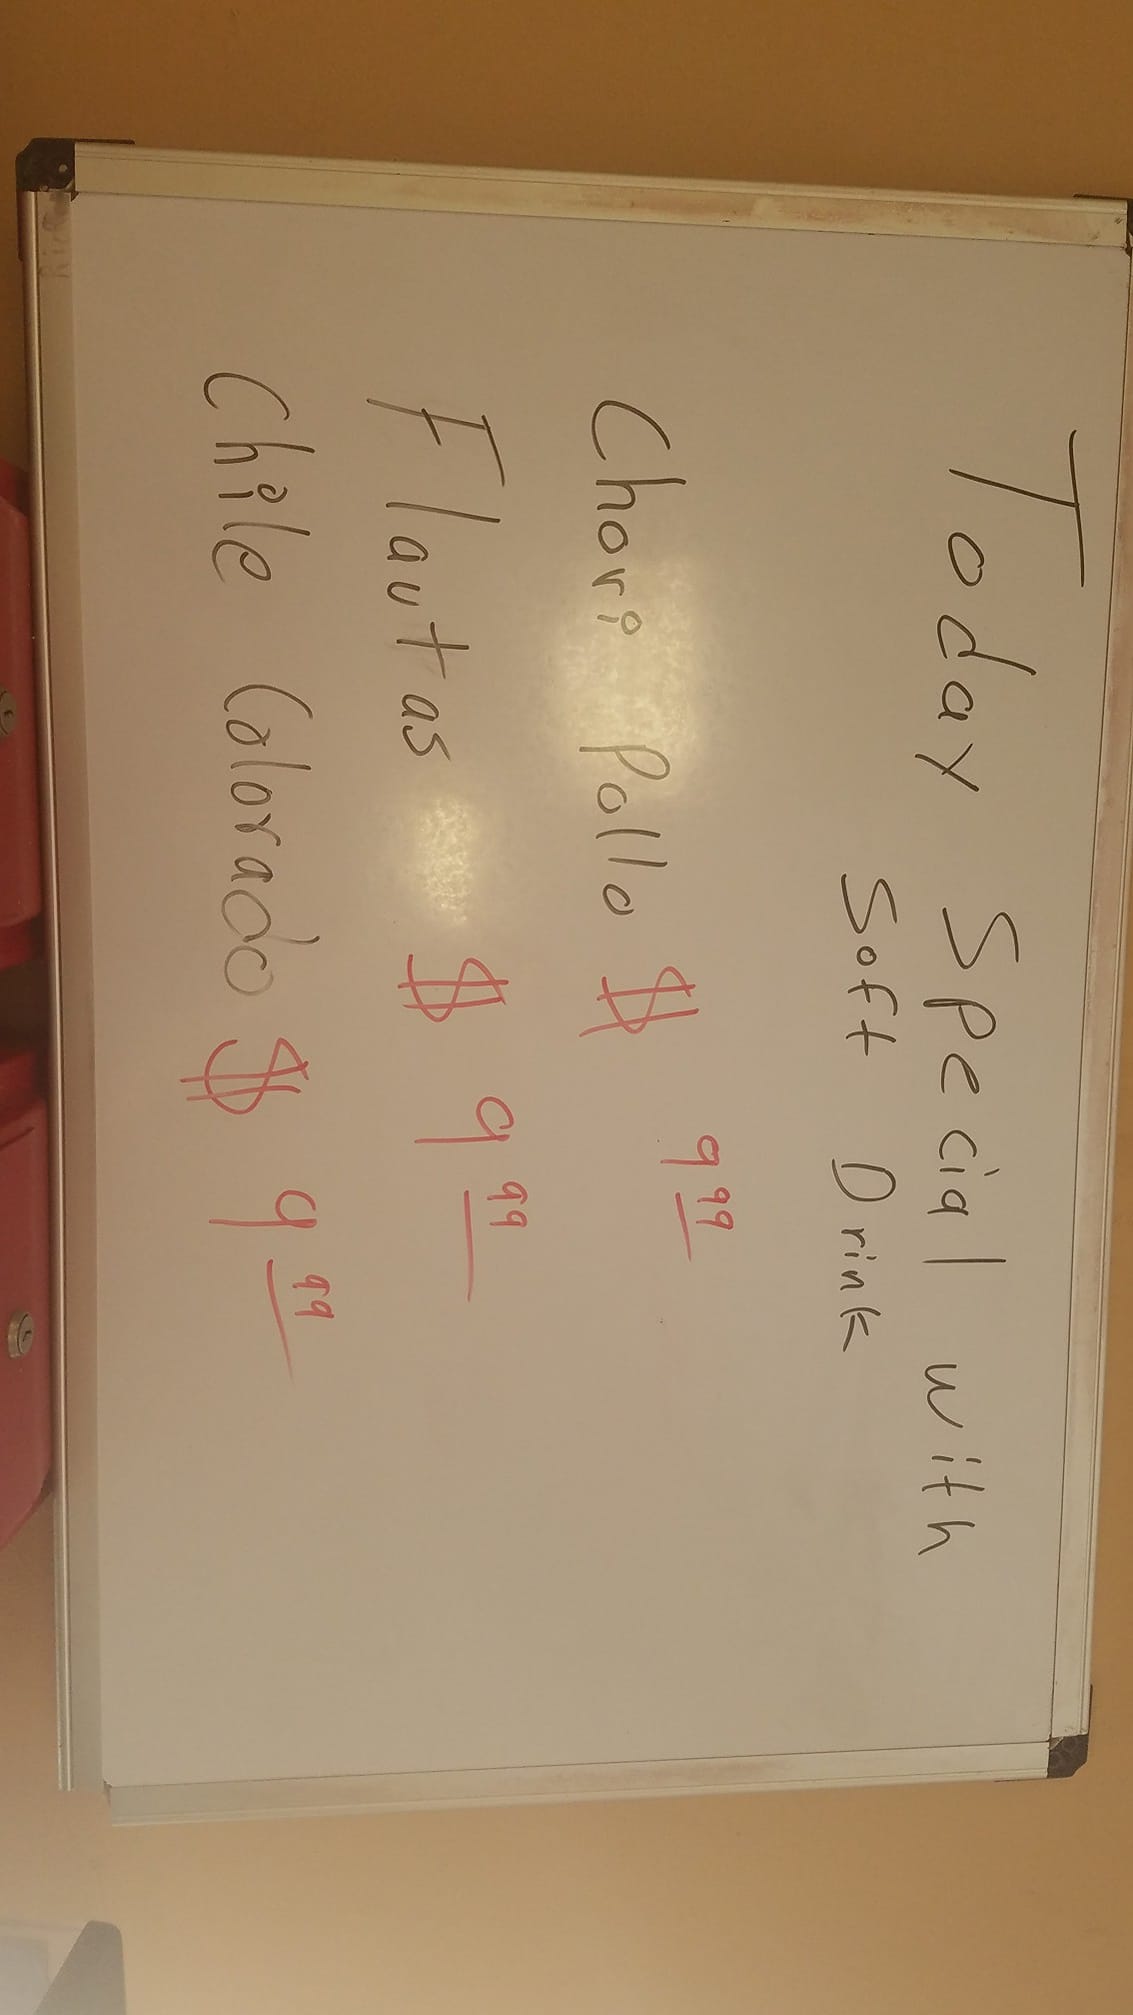 Today Special with
Soft Drink
Chori Pollo $ 9 99
Flautas $ 9 99
Chile Colorado $ 9 99